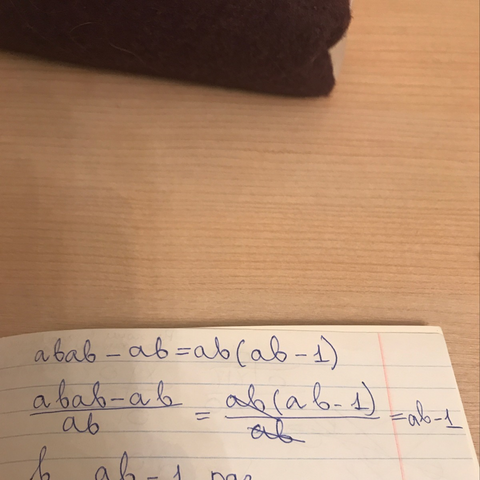 abab - ab = ab(ab - 1)
abab - ab / ab = ab(ab - 1) / ab = ab - 1
ab - 1